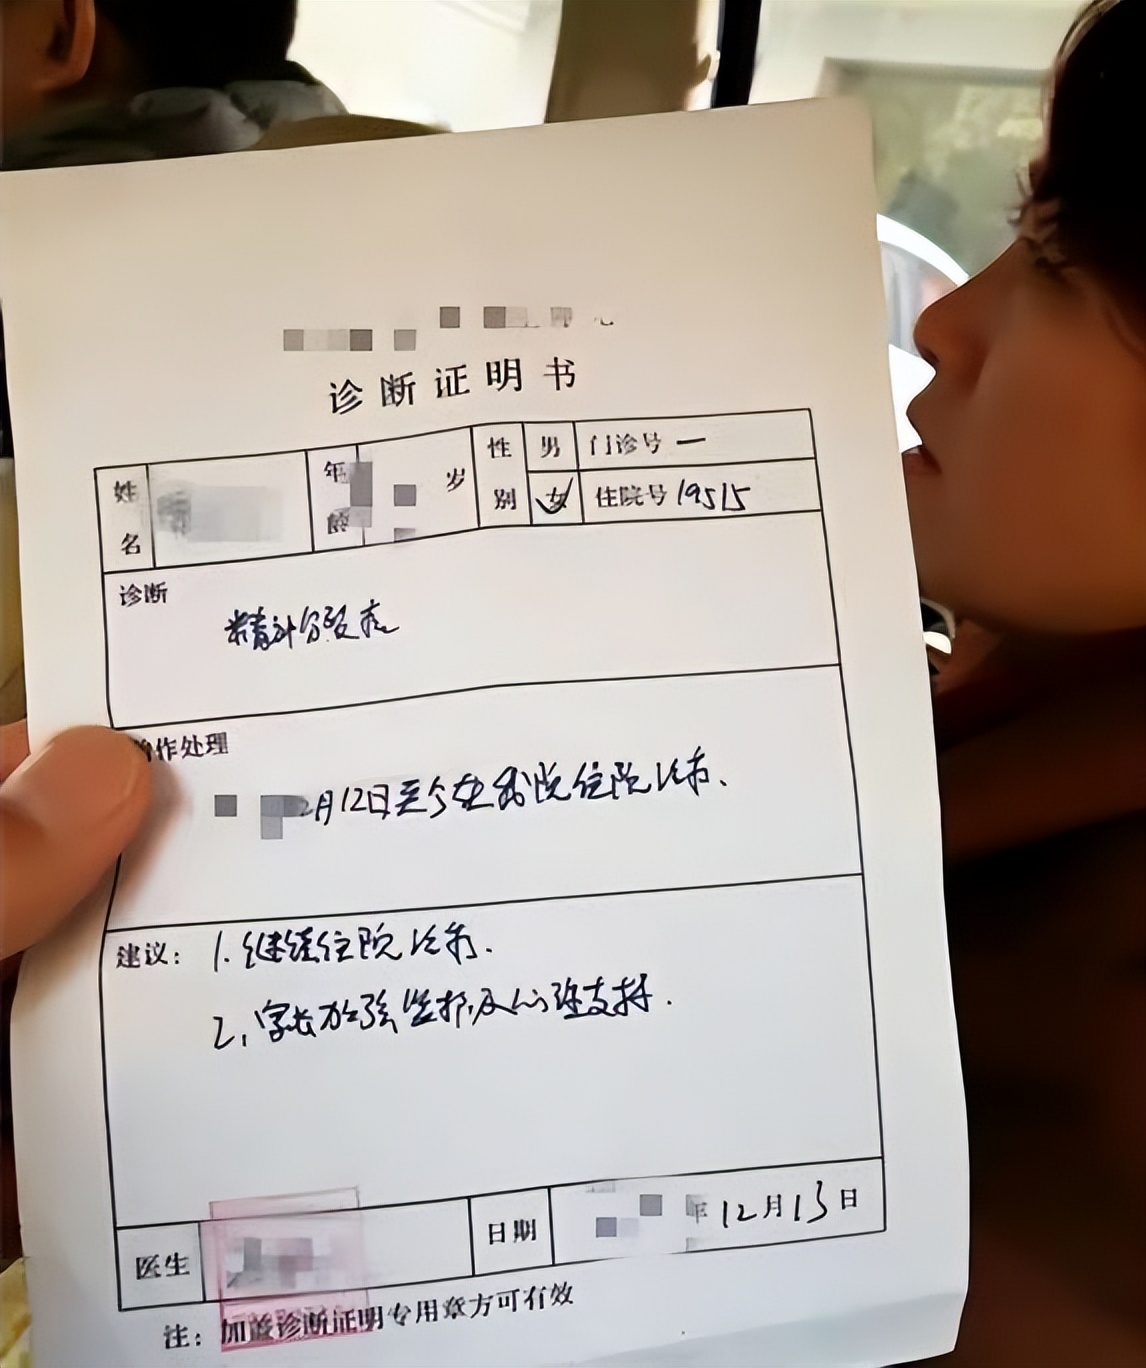 诊断证明书
姓名 年龄 岁 性别 男 女 门诊号 一
住院号 19515
诊断
精神分裂症
作处理
2月12日至今在我院住院治疗、
建议: 1. 继续住院治疗.
2. 家长加强监护及心理支持.
医生 日期 年12月13日
注: 加盖诊断证明专用章方可有效